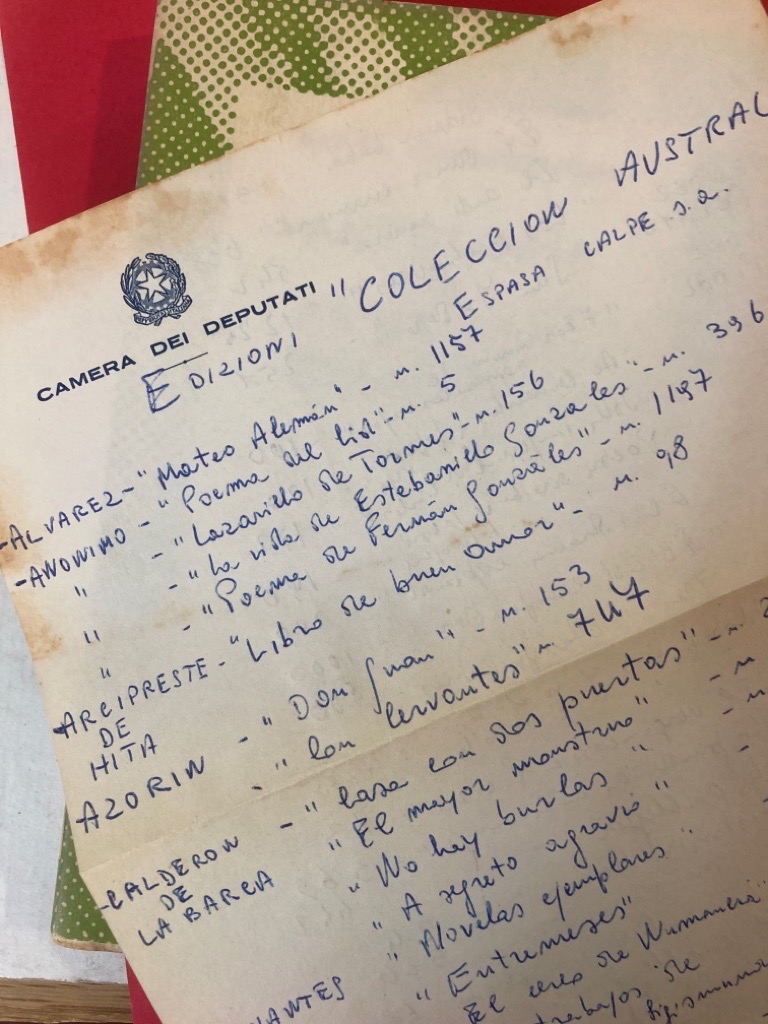 CAMERA DEI DEPUTATI
EDIZIONI "COLECCION AUSTRAL
ESPASA CALPE s.a.
-ALVAREZ - "Mateo Alemán" - n. 1157
-ANONIMO - "Poema del Cid" - n. 5
" - "Lazarillo de Tormes" - n. 156
" - "La vida de Estebanillo Gonzales" - n. 396
" - "Poema de Fernán Gonzáles" - n. 1197
-ARCIPRESTE DE HITA - "Libro de buen amor" - n. 98
AZORIN - "Don Juan" - n. 153
- "Con Cervantes" n. 747
-CALDERON DE LA BARCA - "Casa con dos puertas" - n. 2
"El mayor monstruo" - n
"No hay burlas" - n
"A segreto agravio" -
"Novelas ejemplares"
VANTES "Entremeses"
"El cerco de Numancia"
trabajos de
sigismunda